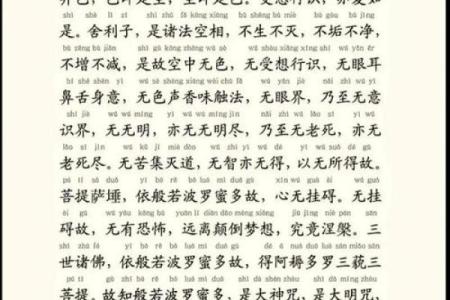 异色，色即是空，空即是色。受想行识，亦复如
shì shè lì zǐ shì zhū fǎ kōng xiàng bù shēng bù miè bù gòu bù jìng
是。舍利子，是诸法空相，不生不灭，不垢不净，
bù zēng bù jiǎn shì gù kōng zhōng wú sè wú shòu xiǎng xíng shí wú yǎn ěr
不增不减，是故空中无色，无受想行识，无眼耳
bí shé shēn yì wú sè shēng xiāng wèi chù fǎ wú yǎn jiè nǎi zhì wú yì
鼻舌身意，无色声香味触法，无眼界，乃至无意
shí jiè wú wú míng yì wú wú míng jìn nǎi zhì wú lǎo sǐ yì wú
识界，无无明，亦无无明尽，乃至无老死，亦无
lǎo sǐ jìn wú kǔ jí miè dào wú zhì yì wú dé yǐ wú suǒ dé gù
老死尽。无苦集灭道，无智亦无得，以无所得故。
pú tí sà duǒ yī bō rě bō luó mì duō gù xīn wú guà ài wú guà
菩提萨埵，依般若波罗蜜多故，心无挂碍。无挂
ài gù wú yǒu kǒng bù yuǎn lí diān dǎo mèng xiǎng jiū jìng niè pán sān
碍故，无有恐怖，远离颠倒梦想，究竟涅槃。三
shì zhū fó yī bō rě bō luó mì duō gù dé ā nuò duō luó sān miǎo sān
世诸佛，依般若波罗蜜多故，得阿耨多罗三藐三
pú tí gù zhī bō rě bō luó mì duō shì dà shén zhòu shì dà míng zhòu
菩提。故知般若波罗蜜多，是大神咒，是大明咒，